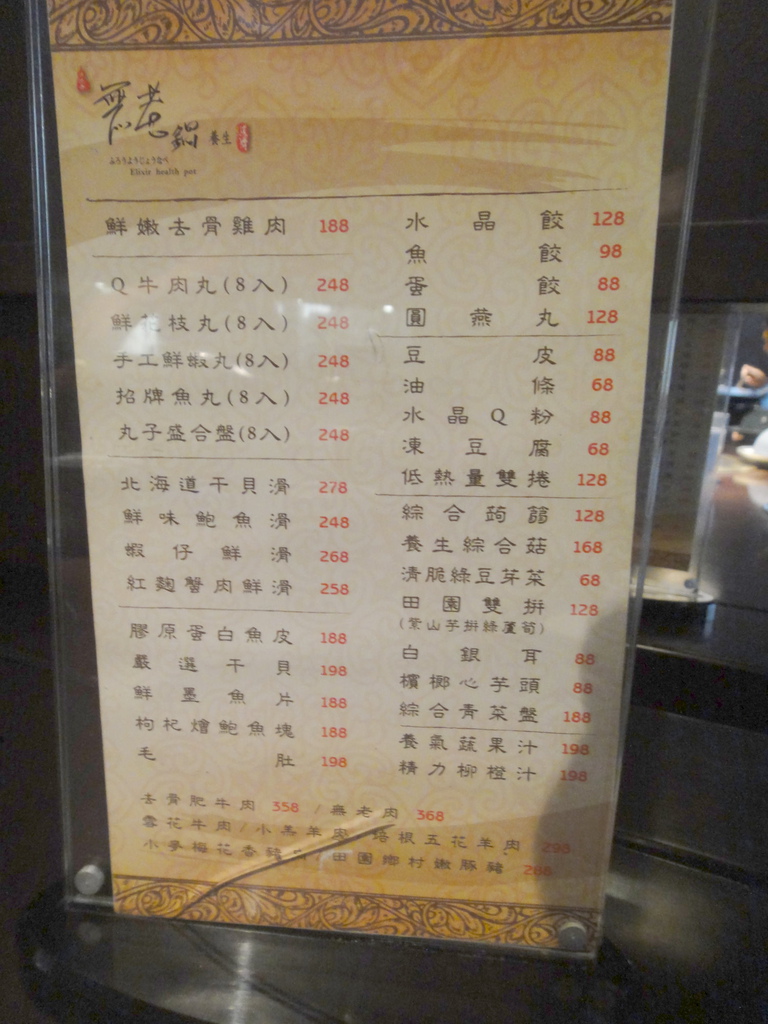 無老鍋 養生
むろうようじょうなべ
Elixir health pot
鮮嫩去骨雞肉 188
Q牛肉丸(8入) 248
鮮花枝丸(8入) 248
手工鮮蝦丸(8入) 248
招牌魚丸(8入) 248
丸子盛合盤(8入) 248
北海道干貝滑 278
鮮味鮑魚滑 248
蝦仔鮮滑 268
紅麴蟹肉鮮滑 258
膠原蛋白魚皮 188
嚴選干貝 198
鮮墨魚片 188
枸杞燴鮑魚塊 188
毛肚 198
水晶餃 128
魚餃 98
蛋餃 88
圓燕丸 128
豆皮 88
油條 68
水晶Q粉 88
凍豆腐 68
低熱量雙捲 128
綜合蒟蒻 128
養生綜合菇 168
清脆綠豆芽菜 68
田園雙拼 128
(紫山芋拼綠蘆筍)
白銀耳 88
檳榔心芋頭 88
綜合青菜盤 188
養氣蔬果汁 198
精力柳橙汁 198
去骨肥牛肉 358 / 無老肉 368
雪花牛肉/小羔羊肉 培根五花羊肉 298
小麥梅花香豬 /田園鄉村嫩豚豬 288